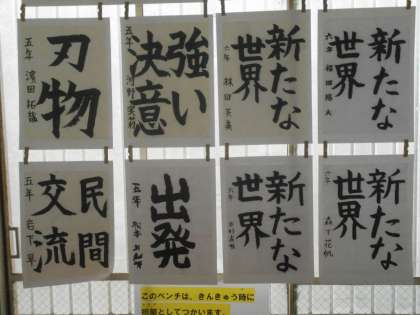 刃物
五年
濱田
強い
決意
五年
河野
新たな
世界
六年
新たな
世界
六年
民間
交流
五年
岩下
出発
五年
新たな
世界
六年
新たな
世界
六年
森下花帆
このベンチは、きんきゅう時に
担架としてつかいます。